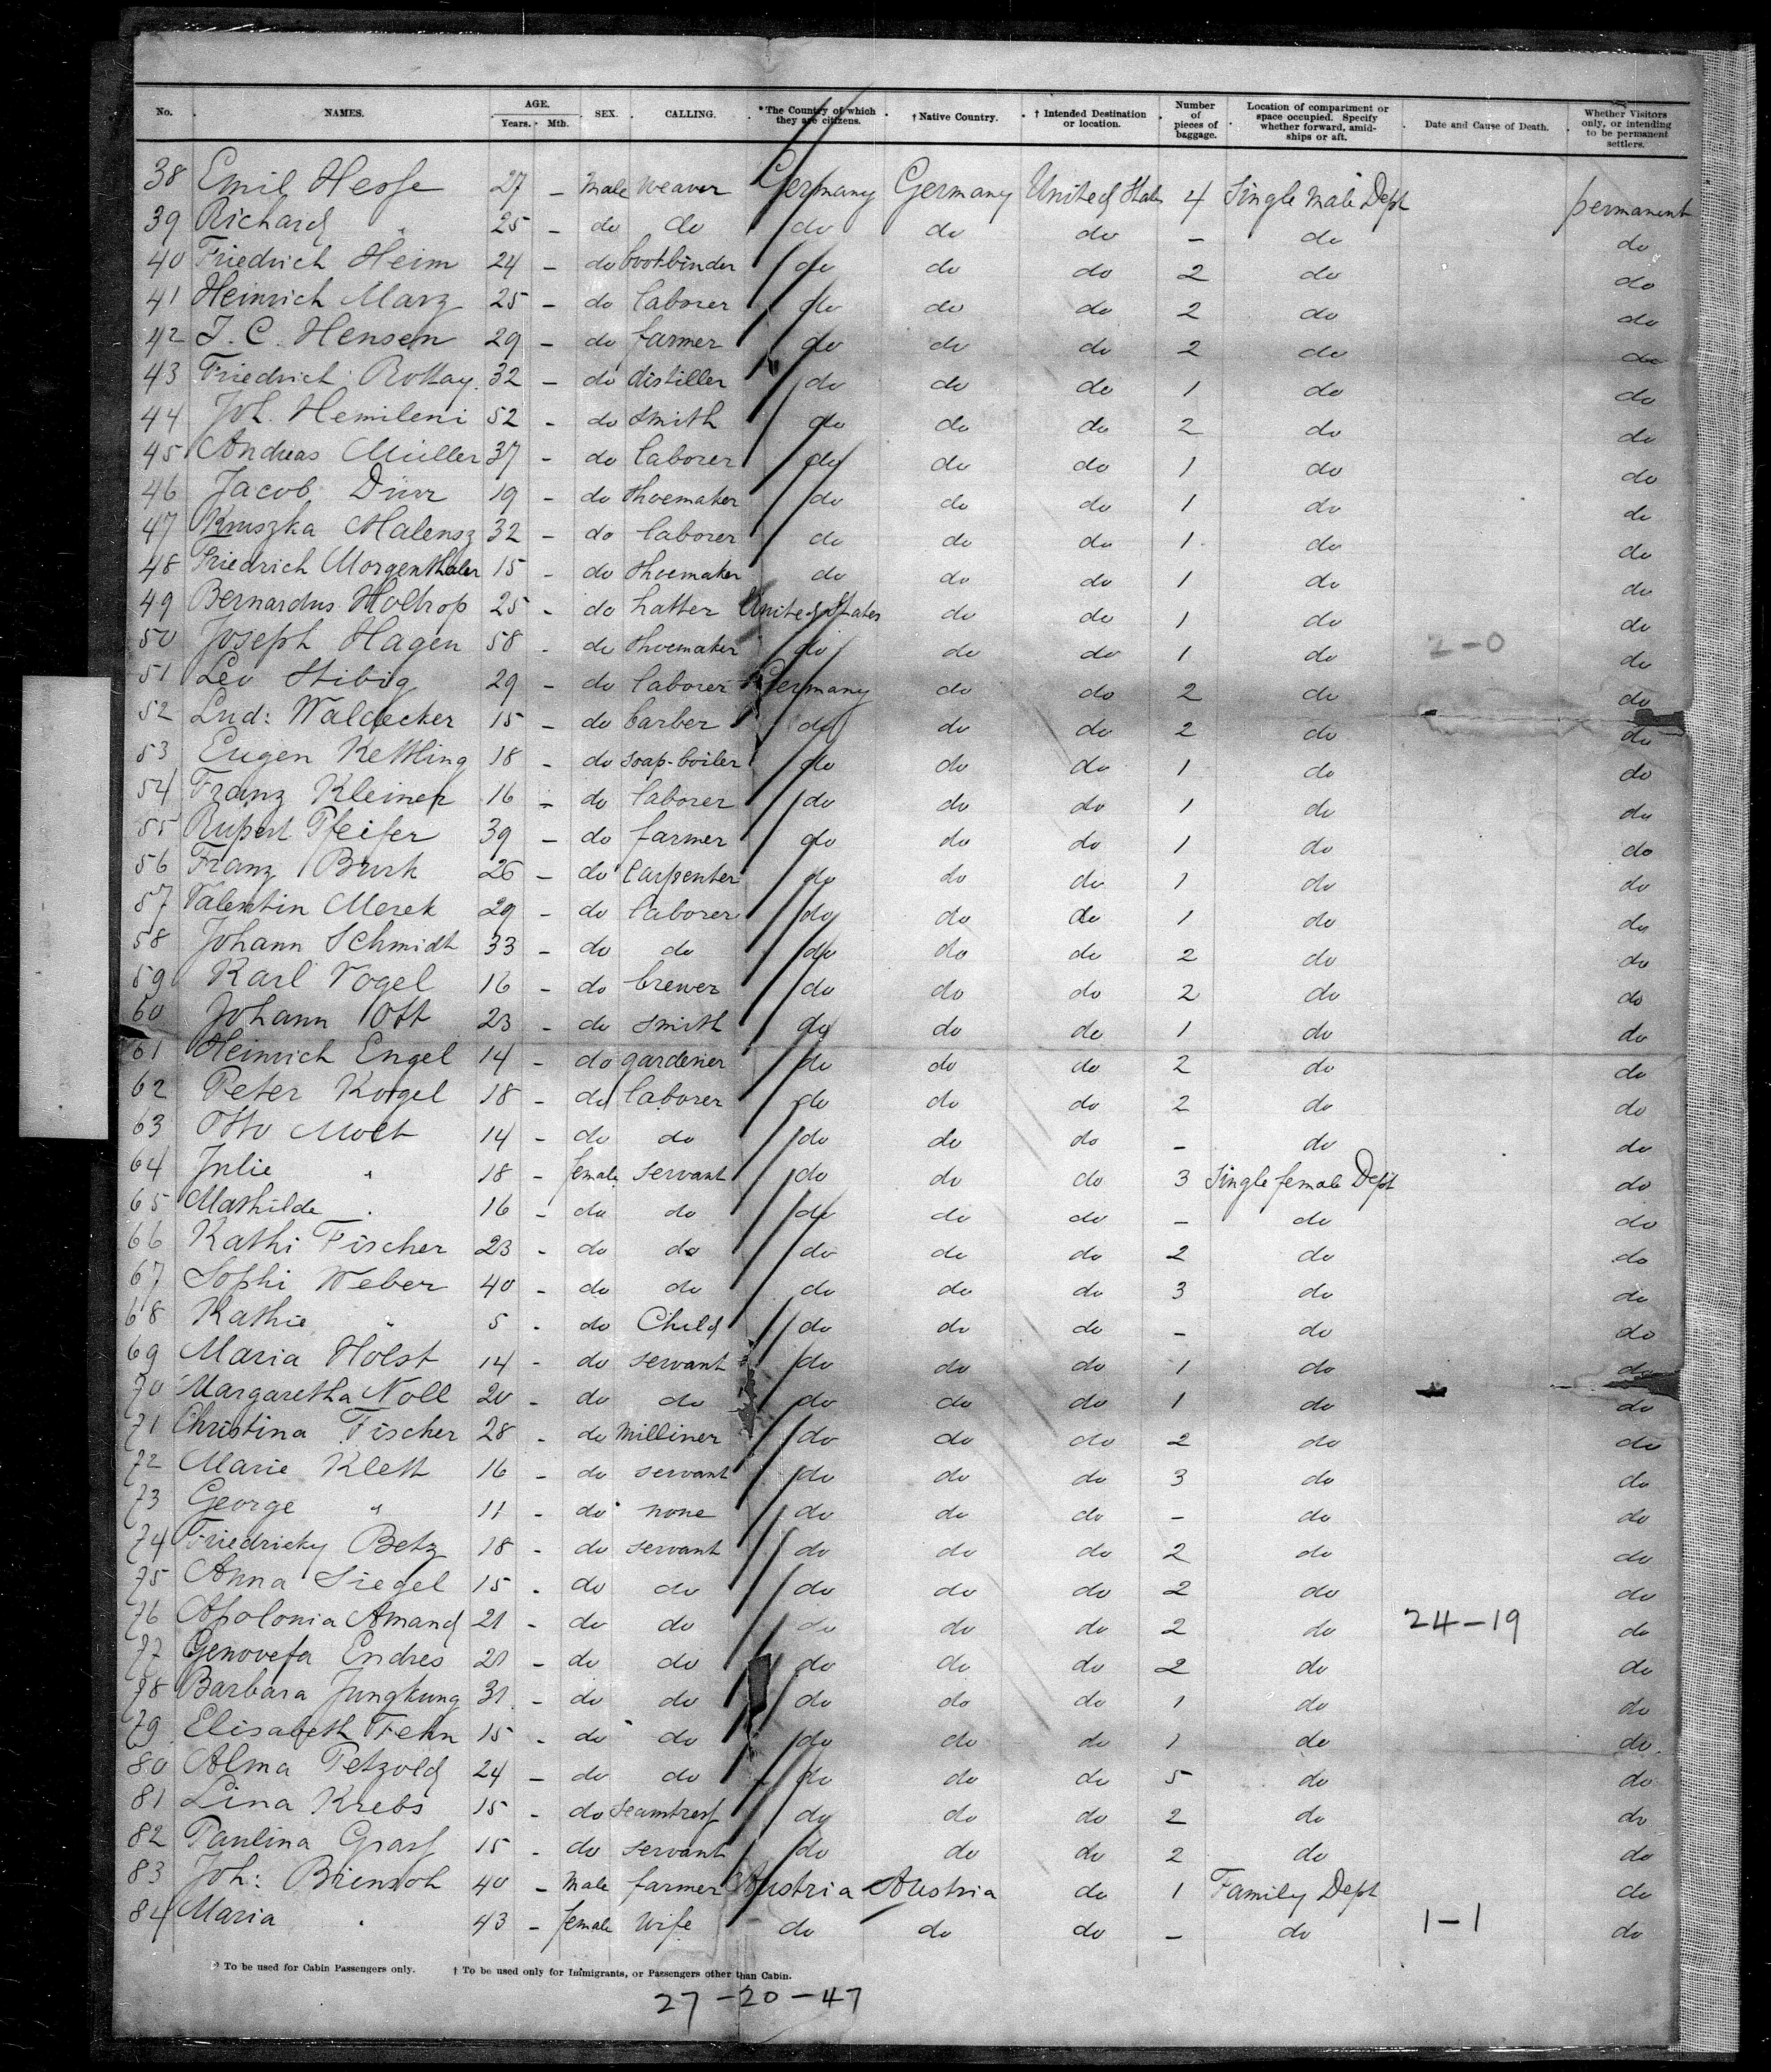 No. NAMES. AGE. Years. Mth. SEX. CALLING. *The Country of which they are citizens. † Native Country. † Intended Destination or location. Number of pieces of baggage. Location of compartment or space occupied. Specify whether forward, amidships or aft. Date and Cause of Death. Whether Visitors only, or intending to be permanent settlers.
38 Emil Hesse 27 - Male Weaver Germany Germany United States 4 Single Male Dept permanent
39 Richard " 25 - do do do do do - do do
40 Friedrich Heim 24 - do bookbinder do do do 2 do do
41 Heinrich Marz 25 - do laborer do do do 2 do do
42 J. C. Hensen 29 - do farmer do do do 2 do do
43 Friedrich Rottay 32 - do distiller do do do 1 do do
44 Joh. Hemileni 52 - do Smith do do do 2 do do
45 Andreas Müller 37 - do laborer do do do 1 do do
46 Jacob Dürr 19 - do Shoemaker do do do 1 do do
47 Kruszka Malensz 32 - do laborer do do do 1 do do
48 Friedrich Morgenthaler 15 - do Shoemaker do do do 1 do do
49 Bernardus Holtrop 25 - do hatter United States do do 1 do do
50 Joseph Hagen 58 - do Shoemaker do do do 1 do 2-0 do
51 Leo Stibig 29 - do laborer Germany do do 2 do do
52 Lud: Waldecker 15 - do barber do do do 2 do do
53 Eugen Kettling 18 - do soap-boiler do do do 1 do do
54 Franz Kleiner 16 - do laborer do do do 1 do do
55 Rupert Pfeifer 39 - do farmer do do do 1 do do
56 Franz Burk 26 - do Carpenter do do do 1 do do
57 Valentin Merek 29 - do laborer do do do 1 do do
58 Johann Schmidt 33 - do do do do do 2 do do
59 Karl Vogel 16 - do brewer do do do 2 do do
60 Johann Ott 23 - do Smith do do do 1 do do
61 Heinrich Engel 14 - do gardener do do do 2 do do
62 Peter Kogel 18 - do laborer do do do 2 do do
63 Otto Molt 14 - do do do do do - do do
64 Julie " 18 - female servant do do do 3 Single female Dept do
65 Mathilde " 16 - do do do do do - do do
66 Kathi Fischer 23 - do do do do do 2 do do
67 Sophi Weber 40 - do do do do do 3 do do
68 Kathie " 5 - do Child do do do - do do
69 Maria Holst 14 - do servant do do do 1 do do
70 Margaretha Noll 20 - do do do do do 1 do do
71 Christina Fischer 28 - do Milliner do do do 2 do do
72 Marie Klett 16 - do servant do do do 3 do do
73 George " 11 - do none do do do - do do
74 Friedricky Betz 18 - do servant do do do 2 do do
75 Anna Siegel 15 - do do do do do 2 do do
76 Apolonia Amand 21 - do do do do do 2 do 24-19 do
77 Genovefa Endres 21 - do do do do do 2 do do
78 Barbara Jungkung 31 - do do do do do 1 do do
79 Elisabeth Fehn 15 - do do do do do 1 do do
80 Alma Petzold 24 - do do do do do 5 do do
81 Lina Krebs 15 - do Seamtress do do do 2 do do
82 Paulina Graf 15 - do servant do do do 2 do do
83 Joh: 40 - Male farmer Austria Austria do 1 Family Dept do
84 Maria " 43 - female Wife do do do - do 1-1 do
* To be used for Cabin Passengers only. † To be used only for Immigrants, or Passengers other than Cabin.
27-20-47